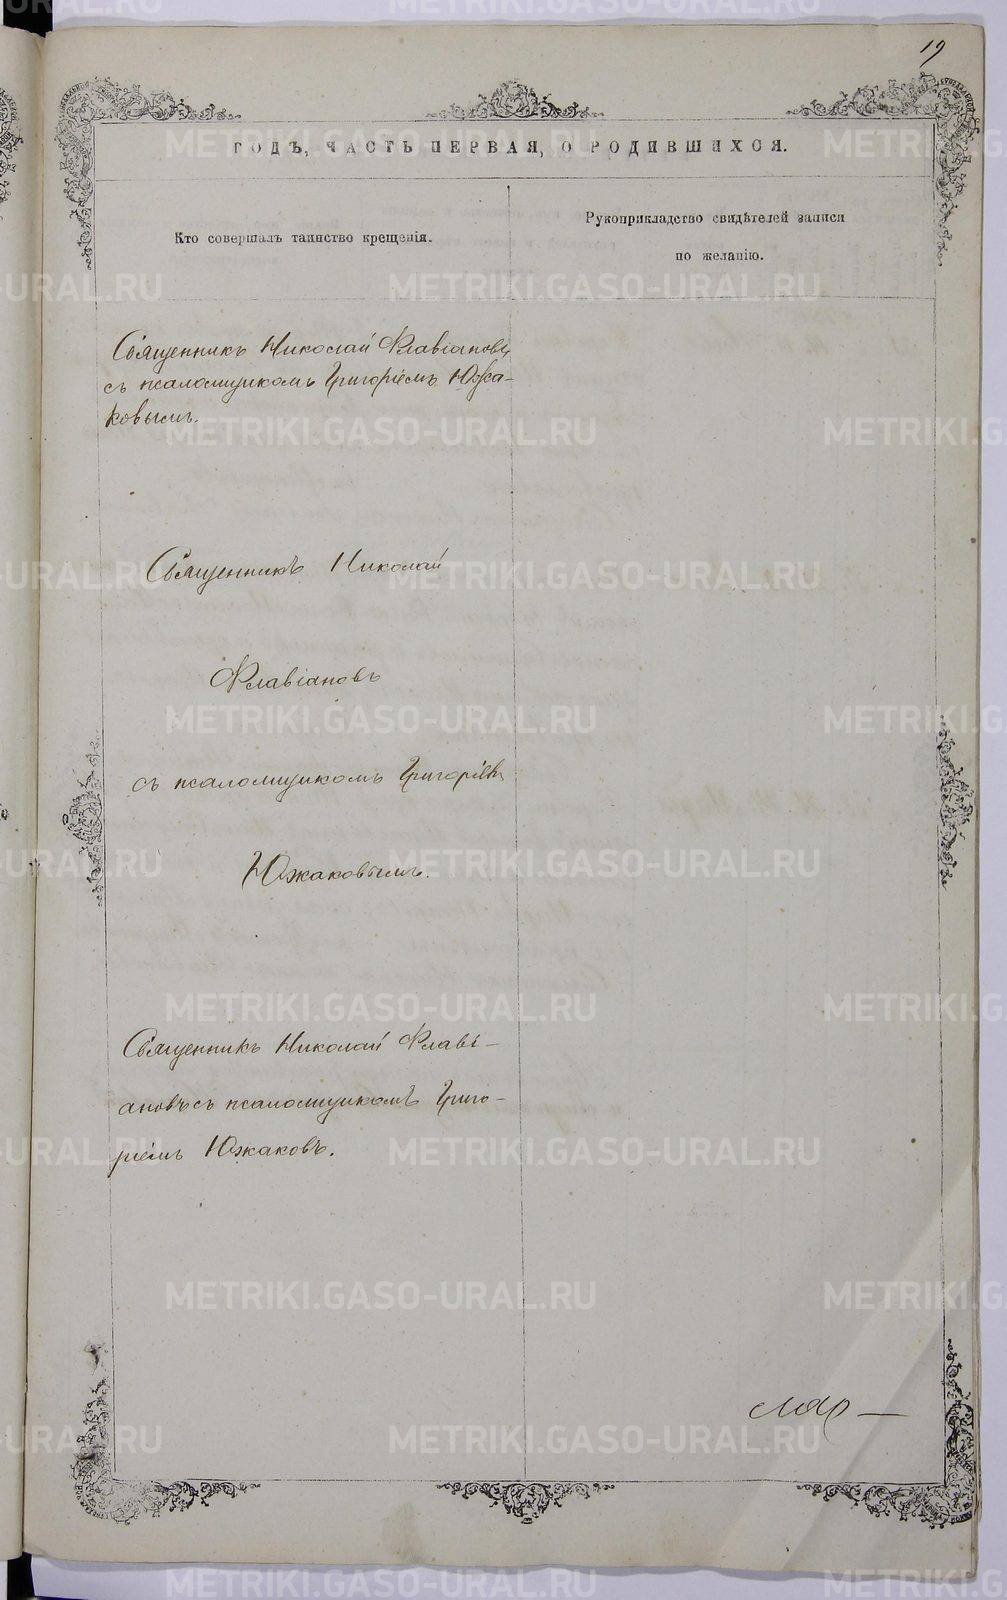 19
ГОДЪ, ЧАСТЬ ПЕРВАЯ, О РОДИВШИХСЯ.
Кто совершалъ таинство крещенія.
Рукоприкладство свидѣтелей записи
по желанію.
Священникъ Николай Флавіановъ
съ псаломщикомъ Григоріемъ Южа-
ковымъ.
Священникъ Николай
Флавіановъ
съ псаломщикомъ Григоріемъ
Южаковымъ.
Священникъ Николай Флаві-
ановъ съ псаломщикомъ Григо-
ріемъ Южаковъ.
METRIKI.GASO-URAL.RU